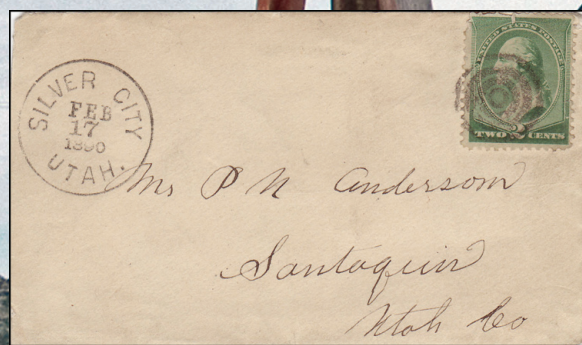 SILVER CITY
FEB
17
1890
UTAH.
UNITED STATES POSTAGE
TWO 2 CENTS
Mr P N Anderson
Santaquin
Utah Co